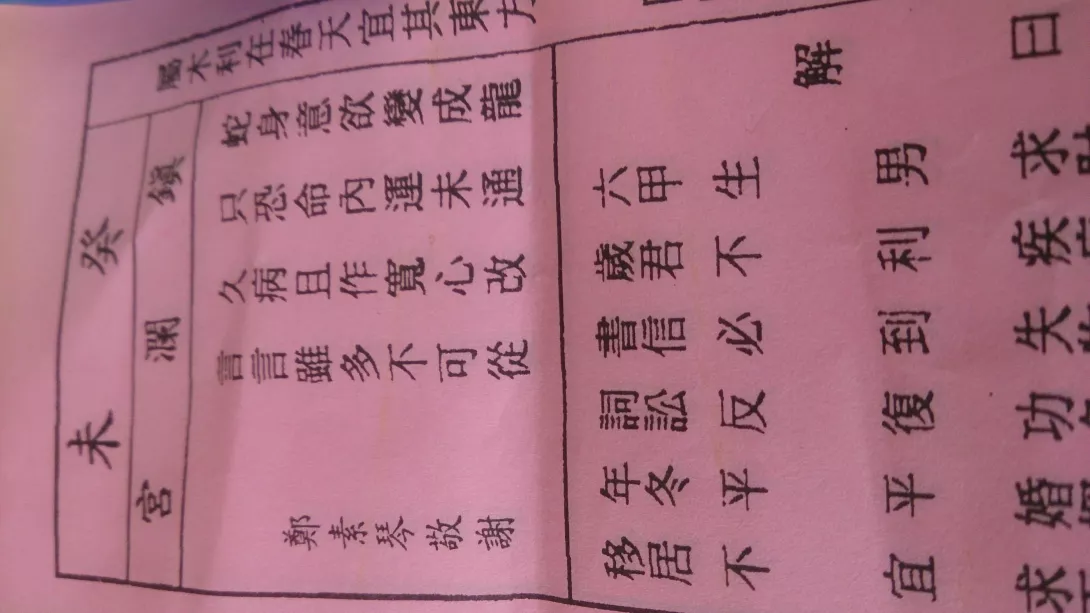 癸未
鎮瀾宮
屬木利在春天宜其東方
蛇身意欲變成龍
只恐命內運未通
久病且作寬心改
言言雖多不可從
鄭素琴敬謝
解曰
六甲生男 求
歲君不利 疾
書信必到 失
詞訟反復 功
年冬平平 婚
移居不宜 求